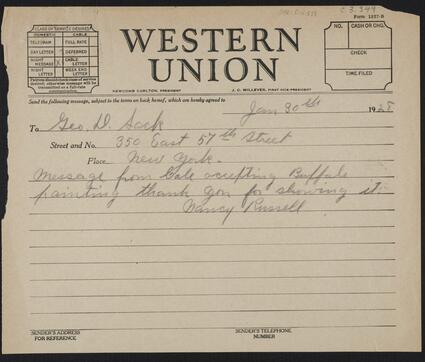 C.3.344
Form 1227-B
CLASS OF SERVICE DESIRED
DOMESTIC CABLE
TELEGRAM FULL RATE
DAY LETTER DEFERRED
NIGHT MESSAGE X CABLE LETTER
NIGHT LETTER WEEK END LETTER
Patrons should check class of service desired; otherwise message will be transmitted as a full-rate communication.
WESTERN
UNION
NEWCOMB CARLTON, PRESIDENT J. C. WILLEVER, FIRST VICE-PRESIDENT
NO. CASH OR CHG.
CHECK
TIME FILED
Send the following message, subject to the terms on back hereof, which are hereby agreed to
Jan 30th 1928
To Geo. D. Sack
Street and No. 350 East 57th Street
Place New York.
Message from Gale accepting Buffalo
painting thank you for showing it.
Nancy Russell
SENDER'S ADDRESS
FOR REFERENCE
SENDER'S TELEPHONE
NUMBER